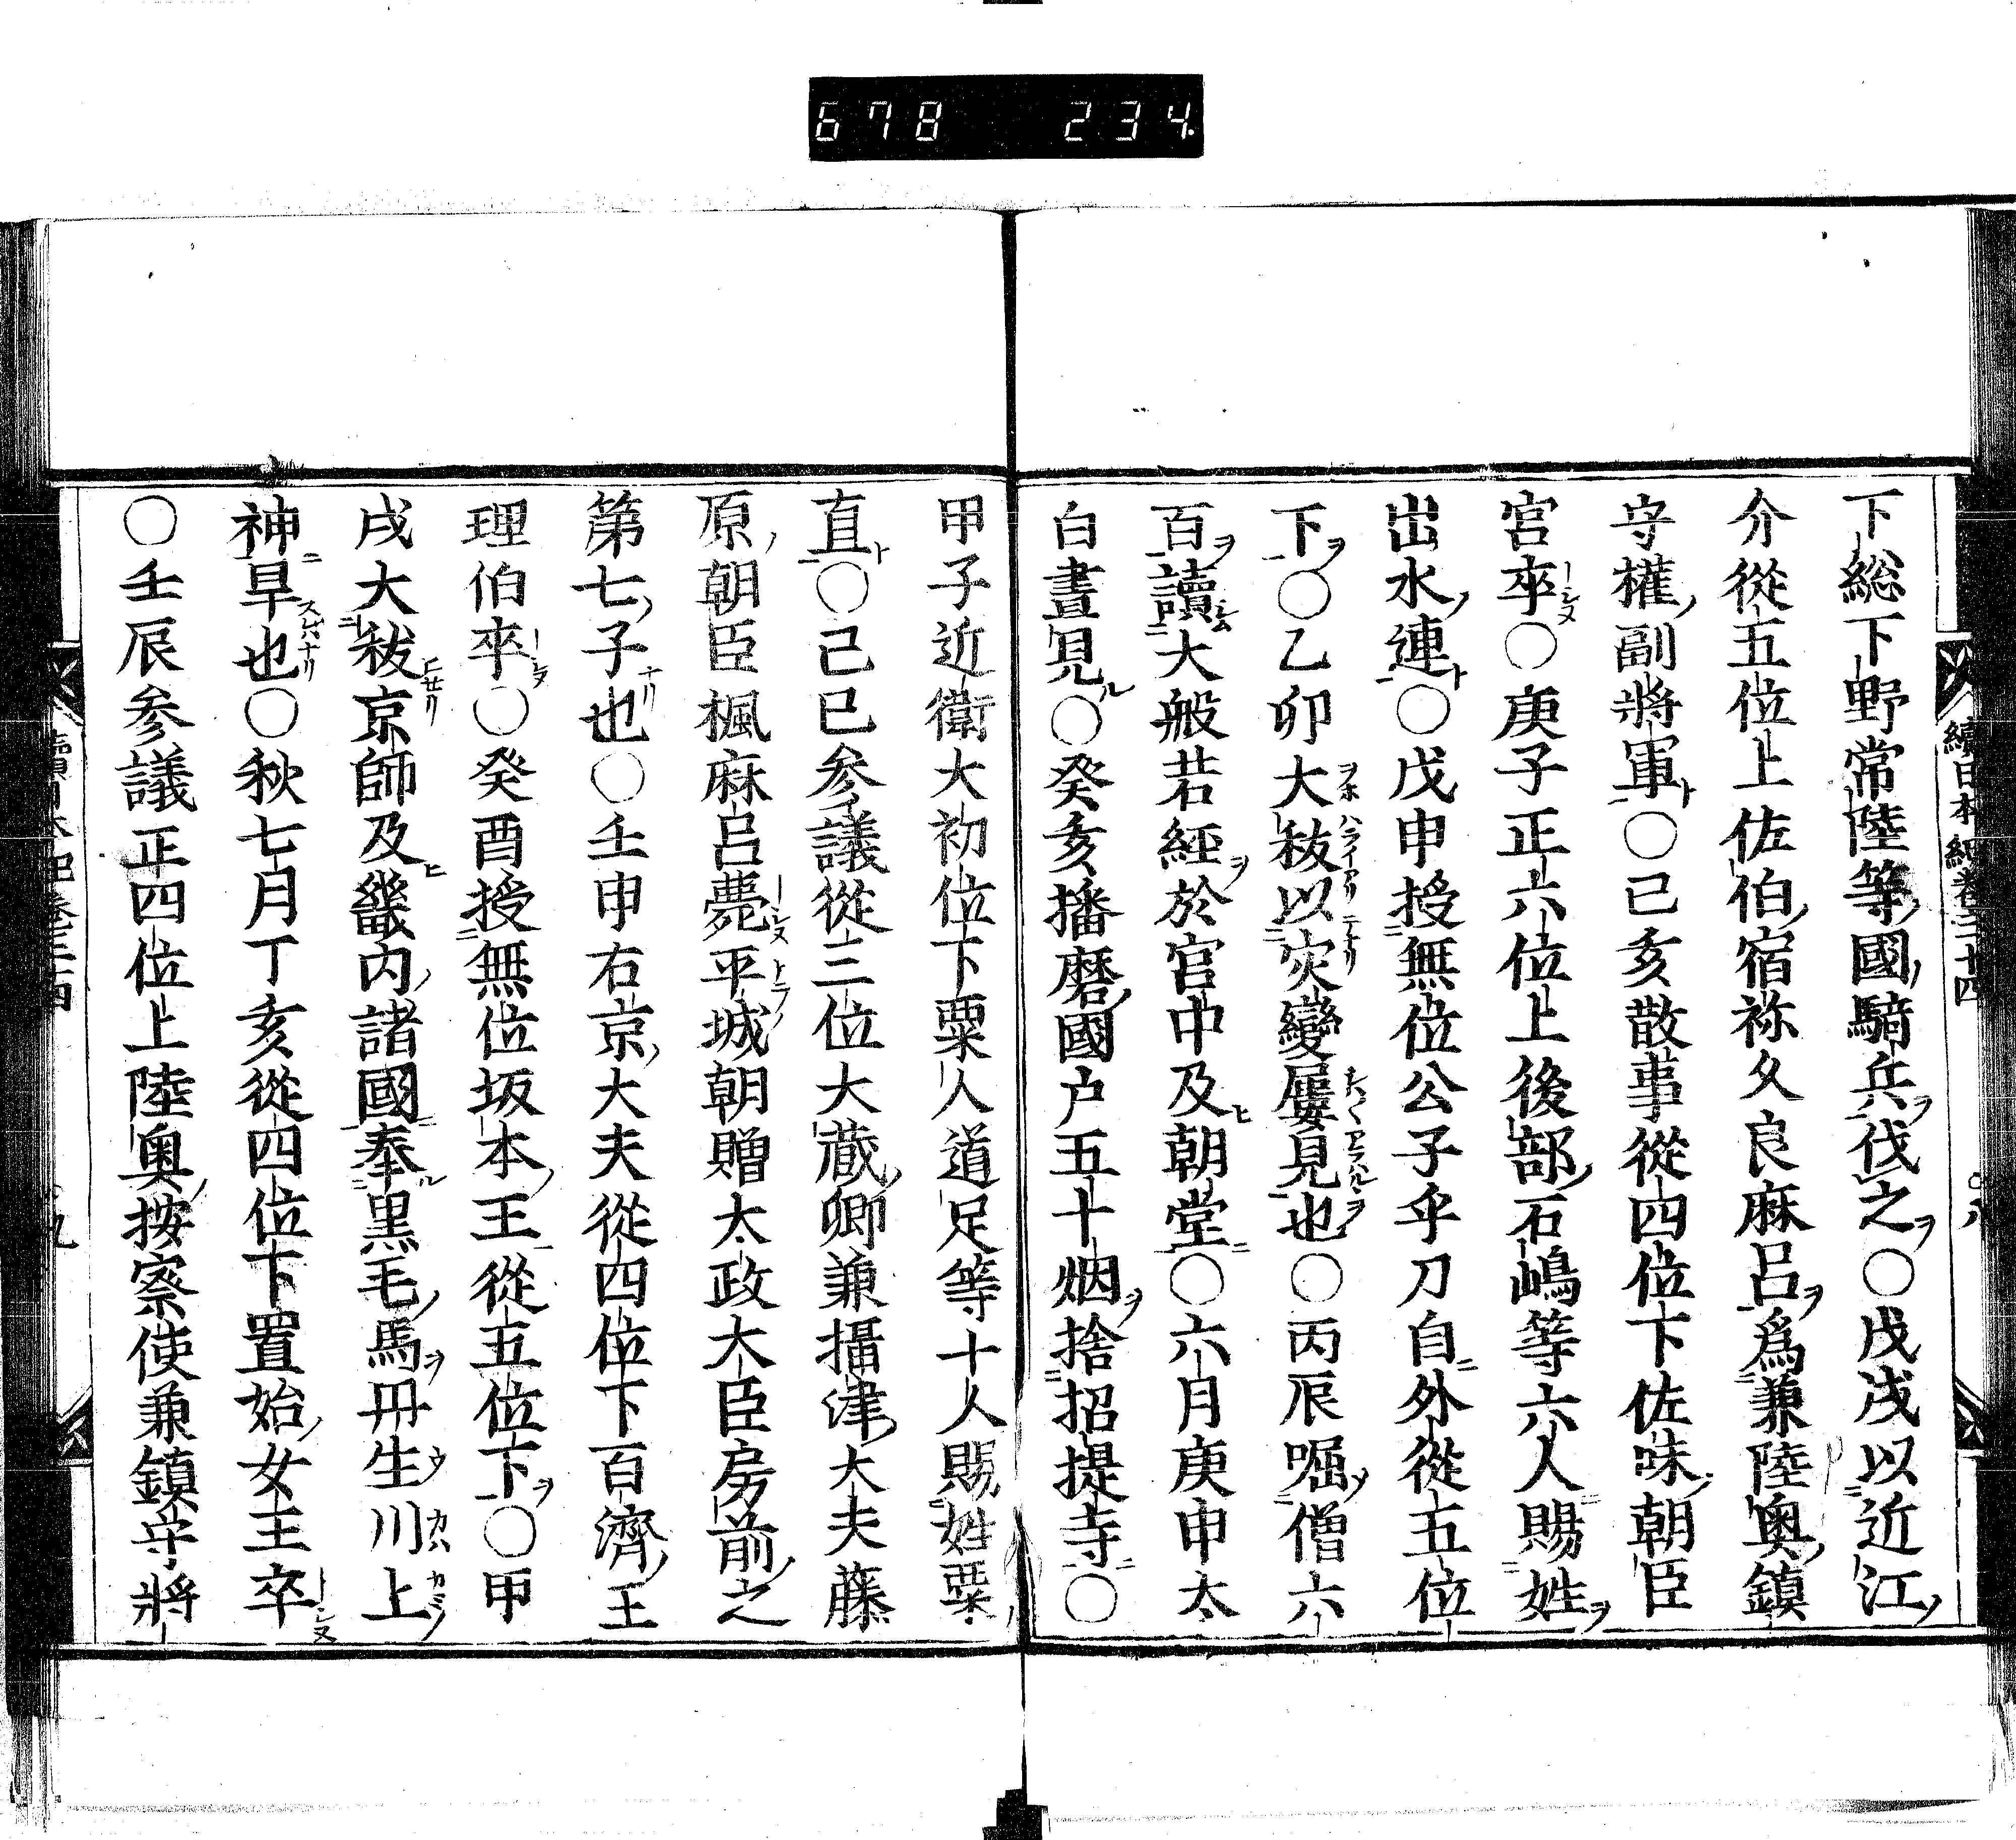 678 234
續日本紀卷三十四 ○八
下総下野常陸等國騎兵伐之○戊戌以近江
介從五位上佐伯宿祢久良麻呂爲兼陸奥鎮
守權副將軍○己亥散事從四位下佐味朝臣
宮卒○庚子正六位上後部石嶋等六人賜姓
出水連○戊申授無位公子乎刀自外從五位
下○乙卯大秡以灾變屢見也○丙辰啒僧六
百讀大般若經於官中及朝堂○六月庚申太
白晝見○癸亥播磨國户五十烟捨招提寺○
甲子近衛大初位下粟人道足等十人賜姓粟
直○己巳参議從三位大蔵卿兼攝津大夫藤
原朝臣楓麻呂薨平城朝贈太政大臣房前之
第七子也○壬申右京大夫從四位下百濟王
理伯卒○癸酉授無位坂本王從五位下○甲
戌大秡京師及畿内諸國奉黒毛馬丹生川上
神旱也○秋七月丁亥從四位下置始女王卒
○壬辰参議正四位上陸奥按察使兼鎮守將
九